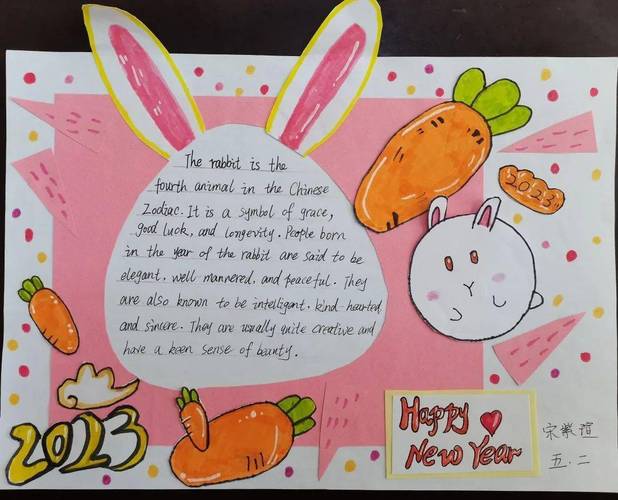 The rabbit is the
fourth animal in the Chinese
Zodiac. It is a symbol of grace,
good luck, and longevity. People born
in the year of the rabbit are said to be
elegant. well mannered, and peaceful. They
are also known to be intelligent. kind-hearted
and sincere. They are usually quite creative and
have a keen sense of beauty.
2023
2023
Happy
New Year
五.二